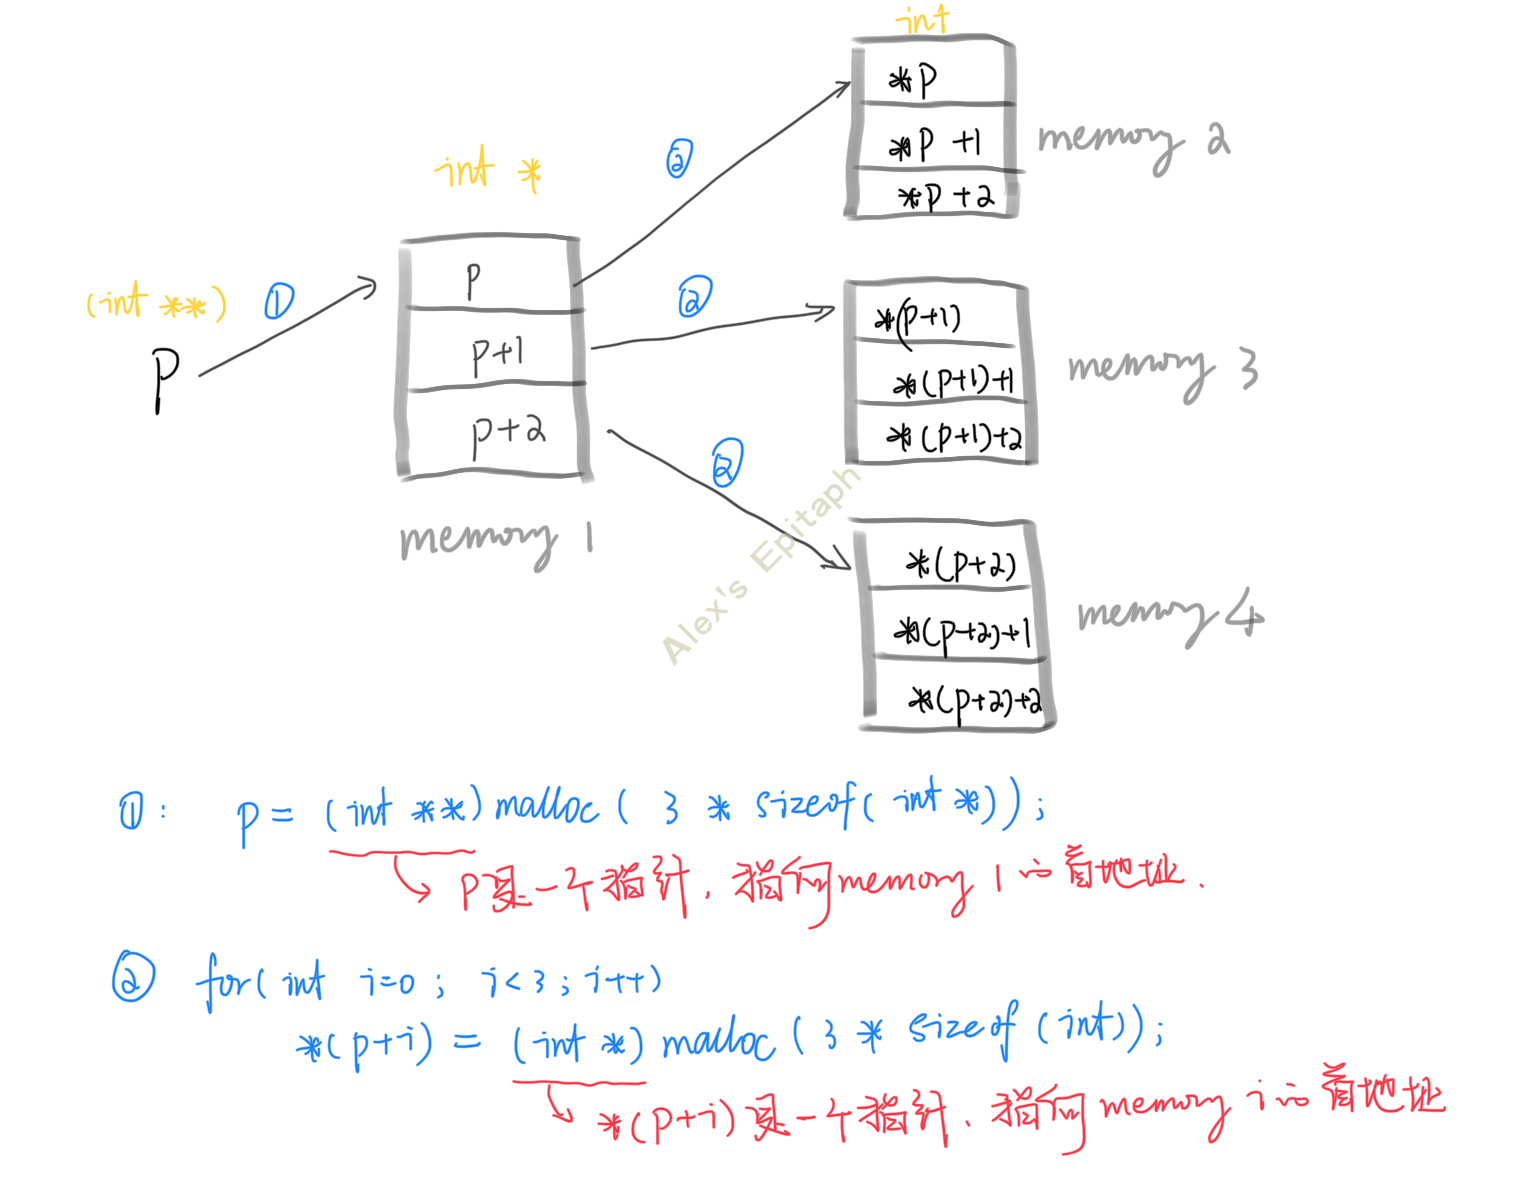 int
*p
*p +1
*p +2
memory 2
int *
②
(int **)
①
p
p
p+1
p+2
memory 1
②
*(p+1)
*(p+1)+1
*(p+1)+2
memory 3
②
*(p+2)
*(p+2)+1
*(p+2)+2
memory 4
Alex's Epitaph
①: p = (int **) malloc ( 3 * sizeof( int *));
p是一个指针，指向memory 1的首地址.
② for( int i=0 ; i<3 ; i++)
*(p+i) = (int *) malloc ( 3 * sizeof (int));
*(p+i)是一个指针，指向memory i的首地址